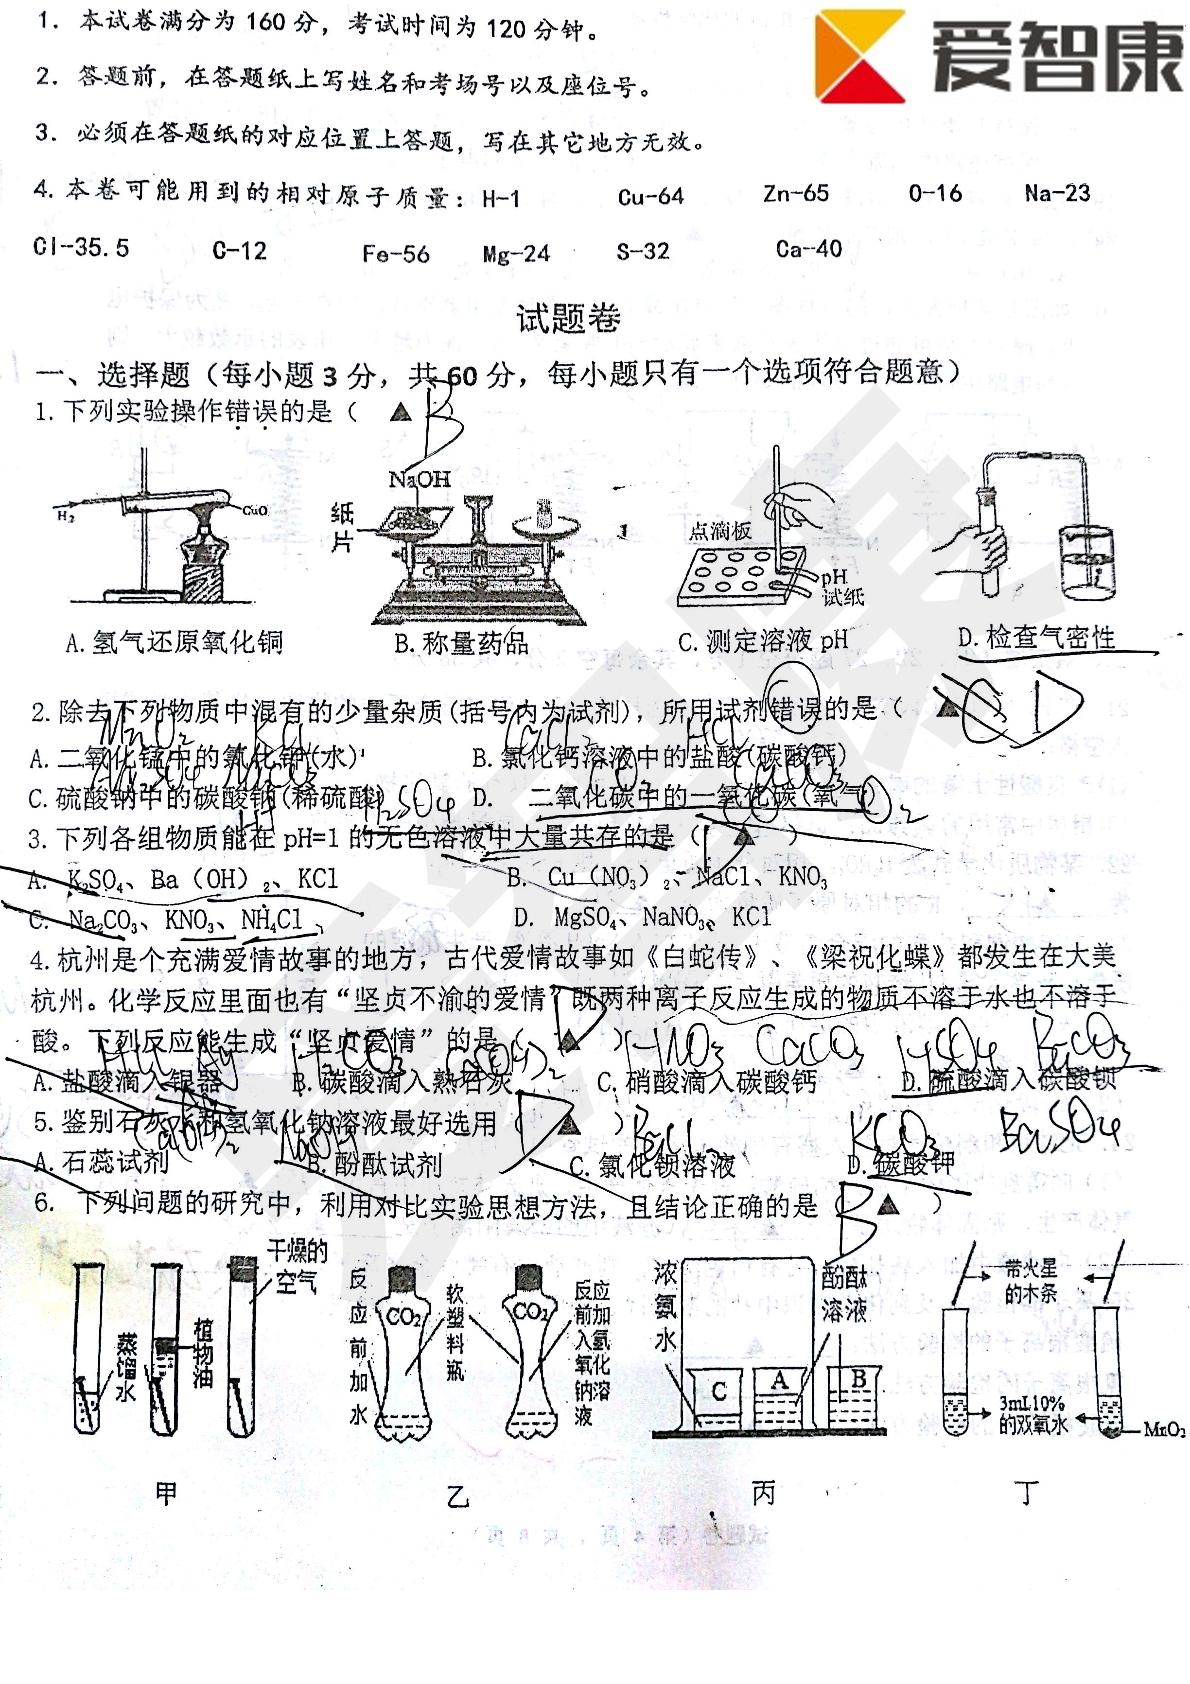 1. 本试卷满分为 160 分，考试时间为 120 分钟。
爱智康
2. 答题前，在答题纸上写姓名和考场号以及座位号。
3. 必须在答题纸的对应位置上答题，写在其它地方无效。
4. 本卷可能用到的相对原子质量：H-1 Cu-64 Zn-65 O-16 Na-23
Cl-35.5 C-12 Fe-56 Mg-24 S-32 Ca-40
试题卷
一、选择题（每小题 3 分，共 60 分，每小题只有一个选项符合题意）
1. 下列实验操作错误的是（ ▲ B ）
H₂ CuO
纸片 NaOH
点滴板 pH试纸
A. 氢气还原氧化铜 B. 称量药品 C. 测定溶液 pH D. 检查气密性
2. 除去下列物质中混有的少量杂质(括号内为试剂)，所用试剂错误的是（ ▲ D
MnO₂ KCl CaCl₂ HCl
A. 二氧化锰中的氯化钾(水) B. 氯化钙溶液中的盐酸(碳酸钙)
CaCO₃
C. 硫酸钠中的碳酸钠(稀硫酸) D. 二氧化碳中的一氧化碳(氧气)
H₂SO₄ CO O₂
3. 下列各组物质能在 pH=1 的无色溶液中大量共存的是（ D ▲ ）
A. K₂SO₄、Ba（OH）₂、KCl B. Cu（NO₃）₂、NaCl、KNO₃
C. Na₂CO₃、KNO₃、NH₄Cl D. MgSO₄、NaNO₃、KCl
4. 杭州是个充满爱情故事的地方，古代爱情故事如《白蛇传》、《梁祝化蝶》都发生在大美
杭州。化学反应里面也有“坚贞不渝的爱情”既两种离子反应生成的物质不溶于水也不溶于
酸。下列反应能生成“坚贞爱情”的是（ D ▲ ）
HCl Ag H₂CO₃ Ca(OH)₂ HNO₃ CaCO₃ H₂SO₄ BaCO₃
A. 盐酸滴入银器 B. 碳酸滴入熟石灰 C. 硝酸滴入碳酸钙 D. 硫酸滴入碳酸钡
5. 鉴别石灰水和氢氧化钠溶液最好选用（ D ▲ ）
Ca(OH)₂ NaOH BaCl₂ K₂CO₃ BaSO₄
A. 石蕊试剂 B. 酚酞试剂 C. 氯化钡溶液 D. 碳酸钾
6. 下列问题的研究中，利用对比实验思想方法，且结论正确的是（ B ▲ ）
蒸馏水 植物油 干燥的空气
反应前加水 CO₂ 软塑料瓶 CO₂ 反应前加入氢氧化钠溶液
浓氨水 C A B 酚酞溶液
带火星的木条 3mL10%的双氧水 MnO₂
甲 乙 丙 丁